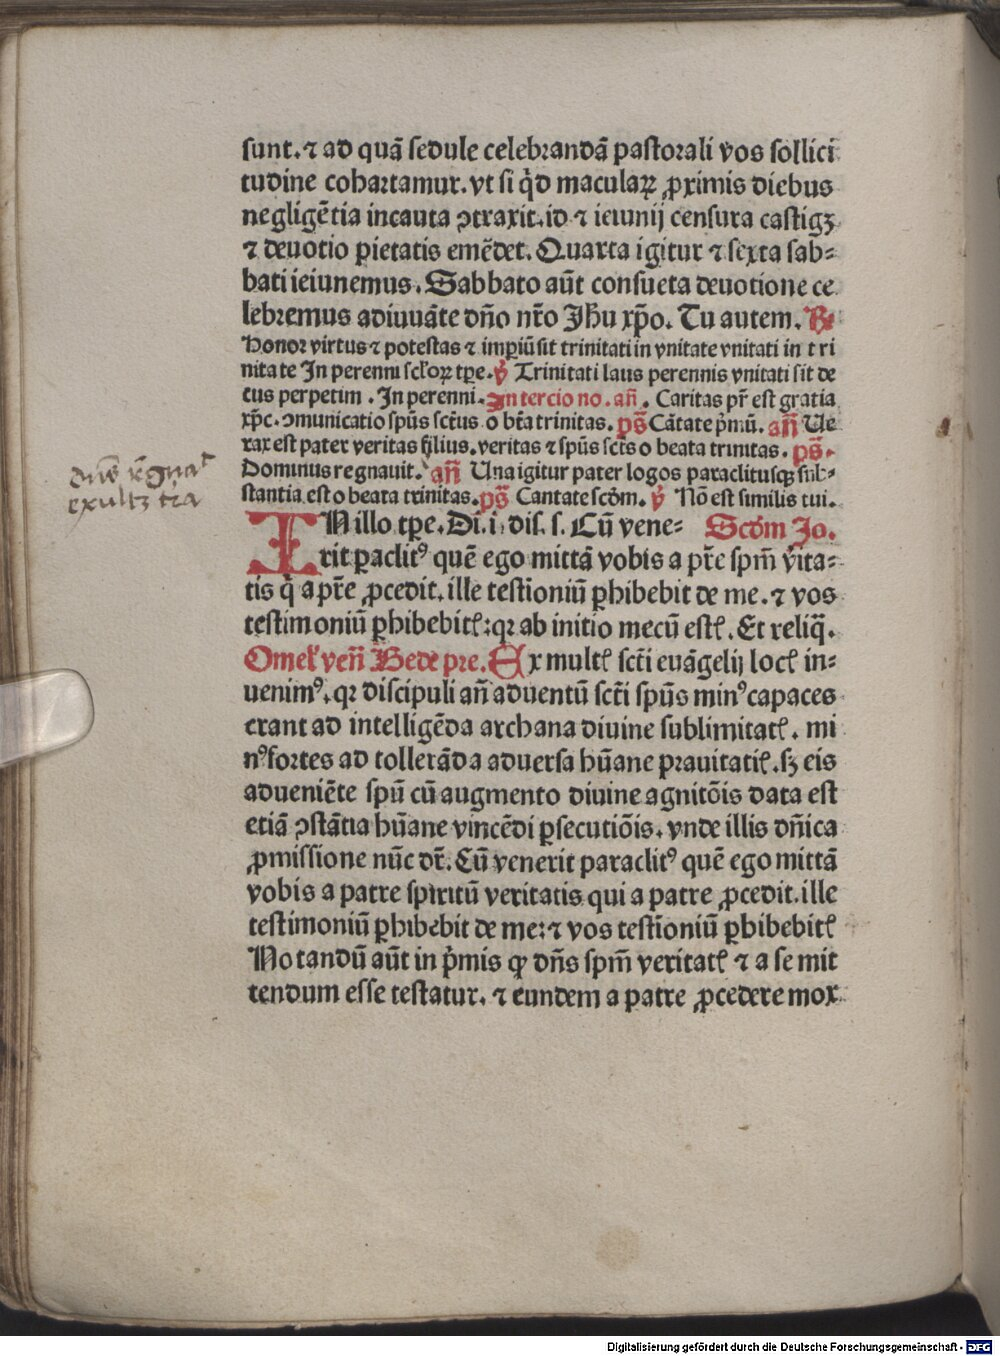 sunt. ⁊ ad quā sedule celebrandā pastorali vos sollici
tudine cohartamur. vt si q̇d maculaꝝ ꝓximis diebus
negligētia incauta ꝯtraxit. id ⁊ ieiunij censura castigꝫ
⁊ deuotio pietatis emēdet. Quarta igitur ⁊ sexta sab⸗
bati ieiunemus. Sabbato aūt consueta deuotione ce
lebremus adiuuāte dn̄o nr̄o Jhū xp̄o. Tu autem. ℟
Honor virtus ⁊ potestas ⁊ imꝑiū sit trinitati in vnitate vnitati in tri
nitate In perenni scl̄oꝝ tꝑe. ℣ Trinitati laus perennis vnitati sit de
cus perpetim. In perenni. In tercio no. an̄. Caritas pr̄ est gratia
xp̄c. ꝯmunicatio spūs sct̄us o bt̄a trinitas. ps̄ Cātate ṗmū. an̄ Ue
rax est pater veritas filius. veritas ⁊ spūs sct̄s o beata trinitas. ps̄.
Dominus regnauit. an̄ Una igitur pater logos paraclitusqꝫ sub⸗
stantia est o beata trinitas. ps̄ Cantate scd̄m. ℣ Nō est similis tui.
dn̄s regnaᵗ
exultꝫ tr̄a
IN illo tꝑe. Di. i. dis. s. Cū vene⸗ Scd̄m Jo.
rit ꝑaclitꝰ quē ego mittā vobis a pr̄e spm̄ v̇ita⸗
tis q̇ a pr̄e ꝓcedit. ille testioniū ꝑhibebit de me. ⁊ vos
testimoniū ꝑhibebitꝭ: qꝛ ab initio mecū estꝭ. Et reliq̄.
Omel' ven̄ Bede pre. Ex multꝭ sct̄i euāgelij locꝭ in⸗
uenimꝰ. qꝛ discipuli an̄ aduentū sct̄i spūs minꝰ capaces
erant ad intelligēda archana diuine sublimitatꝭ. mi
nꝰ fortes ad tollerāda aduersa hūane prauitatꝭ. sꝫ eis
adueniēte spū cū augmento diuine agnitōis data est
etiā ꝯstātia hūane vincēdi ꝑsecutiōis. vnde illis dn̄ica
ꝓmissione nūc dr̄. Cū venerit paraclitꝰ quē ego mittā
vobis a patre spiritū veritatis qui a patre ꝓcedit. ille
testimoniū ꝑhibebit de me: ⁊ vos testīoniū ꝑhibebitꝭ
Notandū aūt in ṗmis ꝙ dn̄s spm̄ veritatꝭ ⁊ a se mit
tendum esse testatur. ⁊ eundem a patre ꝓcedere mox
Digitalisierung gefördert durch die Deutsche Forschungsgemeinschaft - DFG